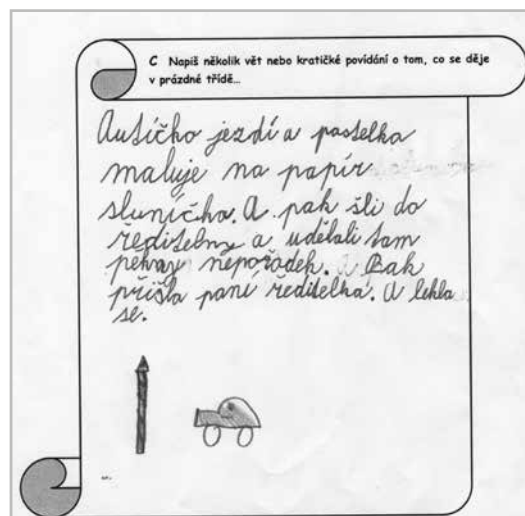 C Napiš několik vět nebo kratičké povídání o tom, co se děje
v prázdné třídě...
Autíčko jezdí a pastelka
maluje na papír
sluníčka. A pak šli do
ředitelny a udělali tam
pěkný nepořádek. A Pak
přišla paní ředitelka. A lekla
se.